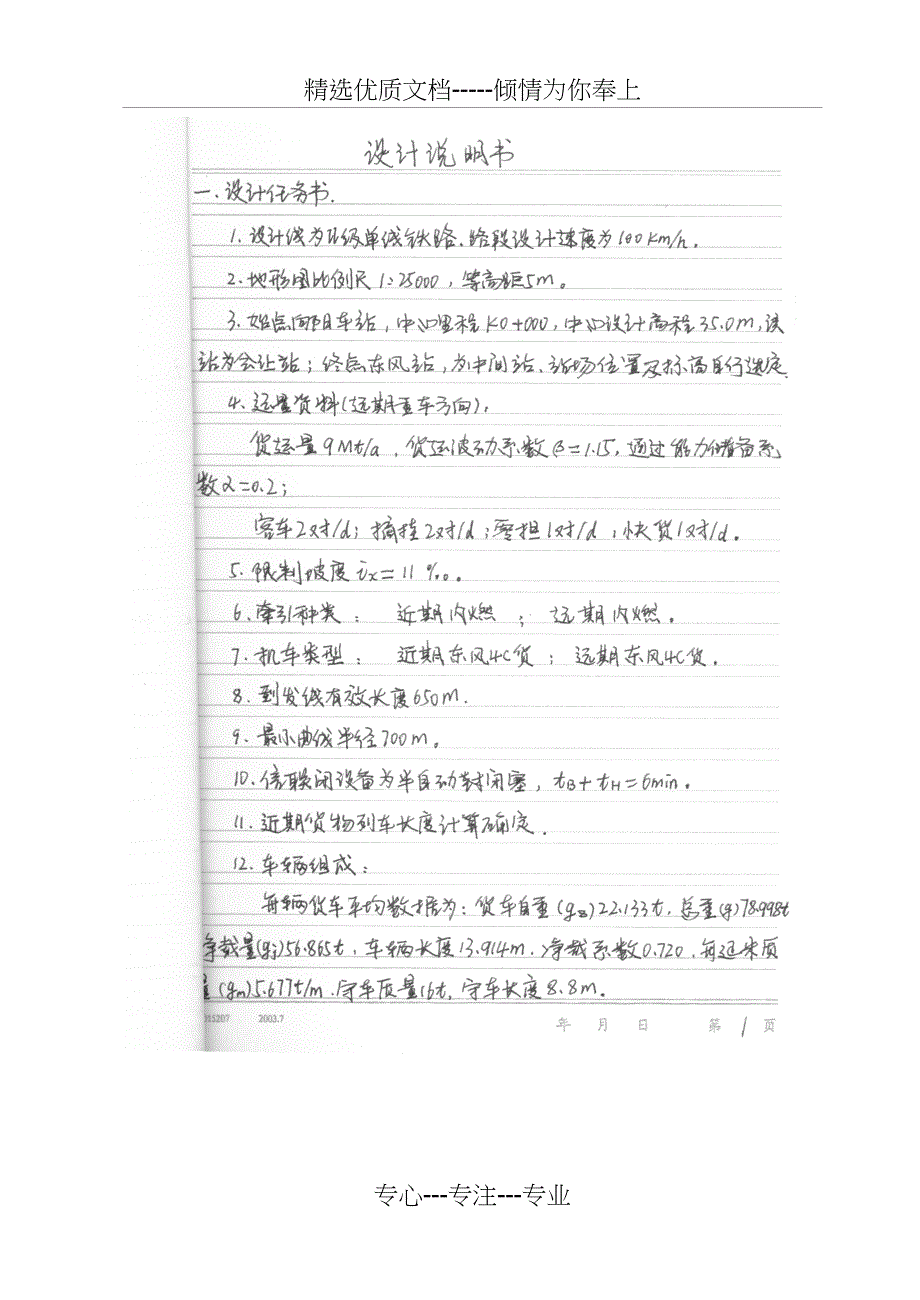 精选优质文档-----倾情为你奉上
设计说明书
一.设计任务书.
1.设计线为Ⅱ级单线铁路.路段设计速度为100km/h.
2.地形图比例尺1:25000,等高距5m。
3.始点向阳车站,中心里程K0+000,中心设计高程35.0m,该
站为会让站;终点东风站,为中间站、站场位置及标高自行选定.
4.运量资料(远期重车方向):
货运量9Mt/a,货运波动系数β=1.15,通过能力储备系
数α=0.2;
客车2对/d;摘挂2对/d;零担1对/d,快货1对/d。
5.限制坡度ix=11‰。
6.牵引种类: 近期内燃 ; 远期内燃。
7.机车类型: 近期东风4C货; 远期东风4C货.
8.到发线有效长度650m.
9.最小曲线半径700m。
10.信联闭设备为半自动封闭塞,tB+tH=6min。
11.近期货物列车长度计算确定.
12.车辆组成:
每辆货车平均数据为:货车自重(gz)22.133t,总重(g)78.998t
净载量(gj)56.865t,车辆长度13.914m.净载系数0.720,每延米质
量(gm)5.677t/m.守车质量16t,守车长度8.8m。
015207 2003.7 年 月 日 第 1 页
专心---专注---专业